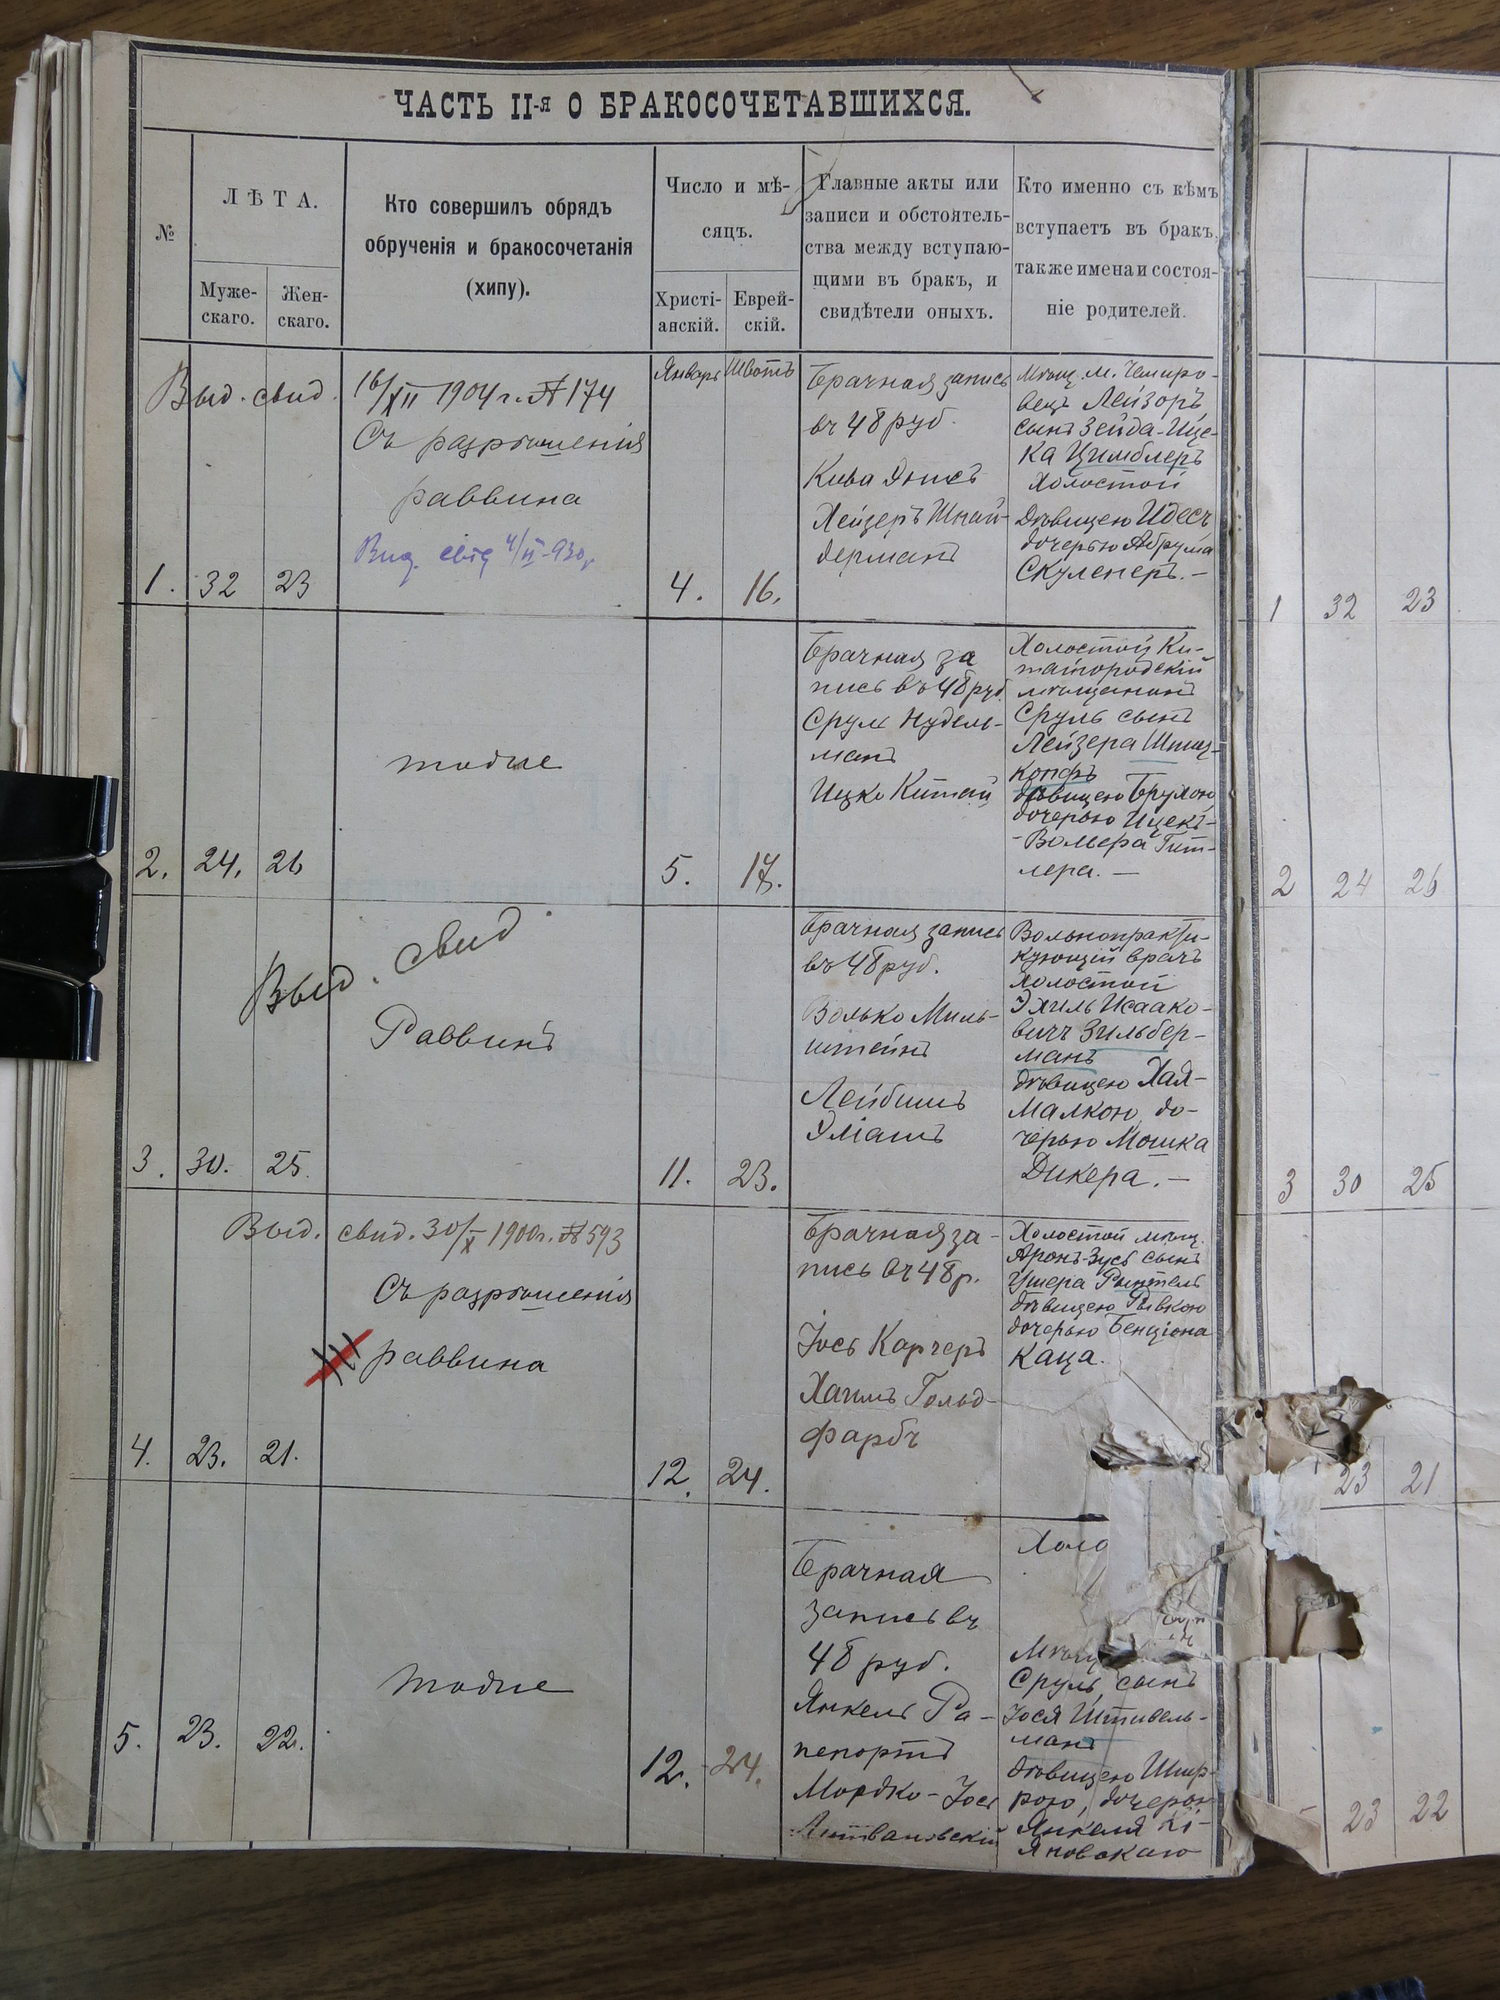 ЧАСТЬ II-я О БРАКОСОЧЕТАВШИХСЯ.
№
ЛѢТА.
Муже-
скаго.
Жен-
скаго.
Кто совершилъ обрядъ
обрученія и бракосочетанія
(хипу).
Число и мѣ-
сяцъ.
Христі-
анскій.
Еврей-
скій.
Главные акты или
записи и обстоятель-
ства между вступаю-
щими въ бракъ, и
свидѣтели оныхъ.
Кто именно съ кѣмъ
вступаетъ въ бракъ,
также имена и состоя-
ніе родителей.
Выд. свид. 16/XII 1904 г. № 174
Съ разрѣшенія
раввина
Вид. свід 4/II-930 р.
1. 32 23
Январь Шватъ
4. 16.
Брачная запись
въ 48 руб.
Кива
Лейзеръ Шнай-
дерманъ
Мѣщ. м. Чемиро-
вецъ Лейзоръ
сынъ Зейда-Ице-
ка Цимблеръ
Холостой
Дѣвицею Идесъ
дочерью Абрума
Скуленеръ.-
2. 24. 26
тоже
5. 17.
Брачная за
пись въ 48 руб.
Срул Нудель-
манъ
Ицко Китай
Холостой Ки-
тайгородскій
мѣщанинъ
Сруль сынъ
Лейзера Шпиц-
копфъ
дѣвицею Брухою
дочерью Ицекъ-
-Волера Гит-
лера.-
Выд. свид
Раввинъ
3. 30. 25.
11. 23.
Брачная запись
въ 48 руб.
Волько Миль-
штейнъ
Лейбишъ
Вольнопракти-
кующій врачъ
Холостой
Эхиль Исаако-
вичъ Зильбер-
манъ
дѣвицею Хая-
Малкою, до-
черью Мошка
Дикера.-
Выд. свид. 30/X 1900 г. № 593
Съ разрѣшенія
раввина
4. 23. 21.
12. 24.
Брачная за-
пись въ 48 р.
Іось Карчеръ
Хаимъ Гольд-
фарбъ
Холостой мѣщ.
Аронъ-Зусь сынъ
Ушера
дѣвицею Ривкою
дочерью Бенціона
Каца.
5. 23. 22.
тоже
12. 24.
Брачная
запись въ
48 руб.
Янкель Ра-
пепортъ
Мордко-Іось
Холо
Мѣщ
Сруль сынъ
Іося Штивель-
манъ
дѣвицею Шир-
рою, дочерью
Янкеля Кі-
яновскаго
1 32 23
2 24 26
3 30 25
23 21
23 22